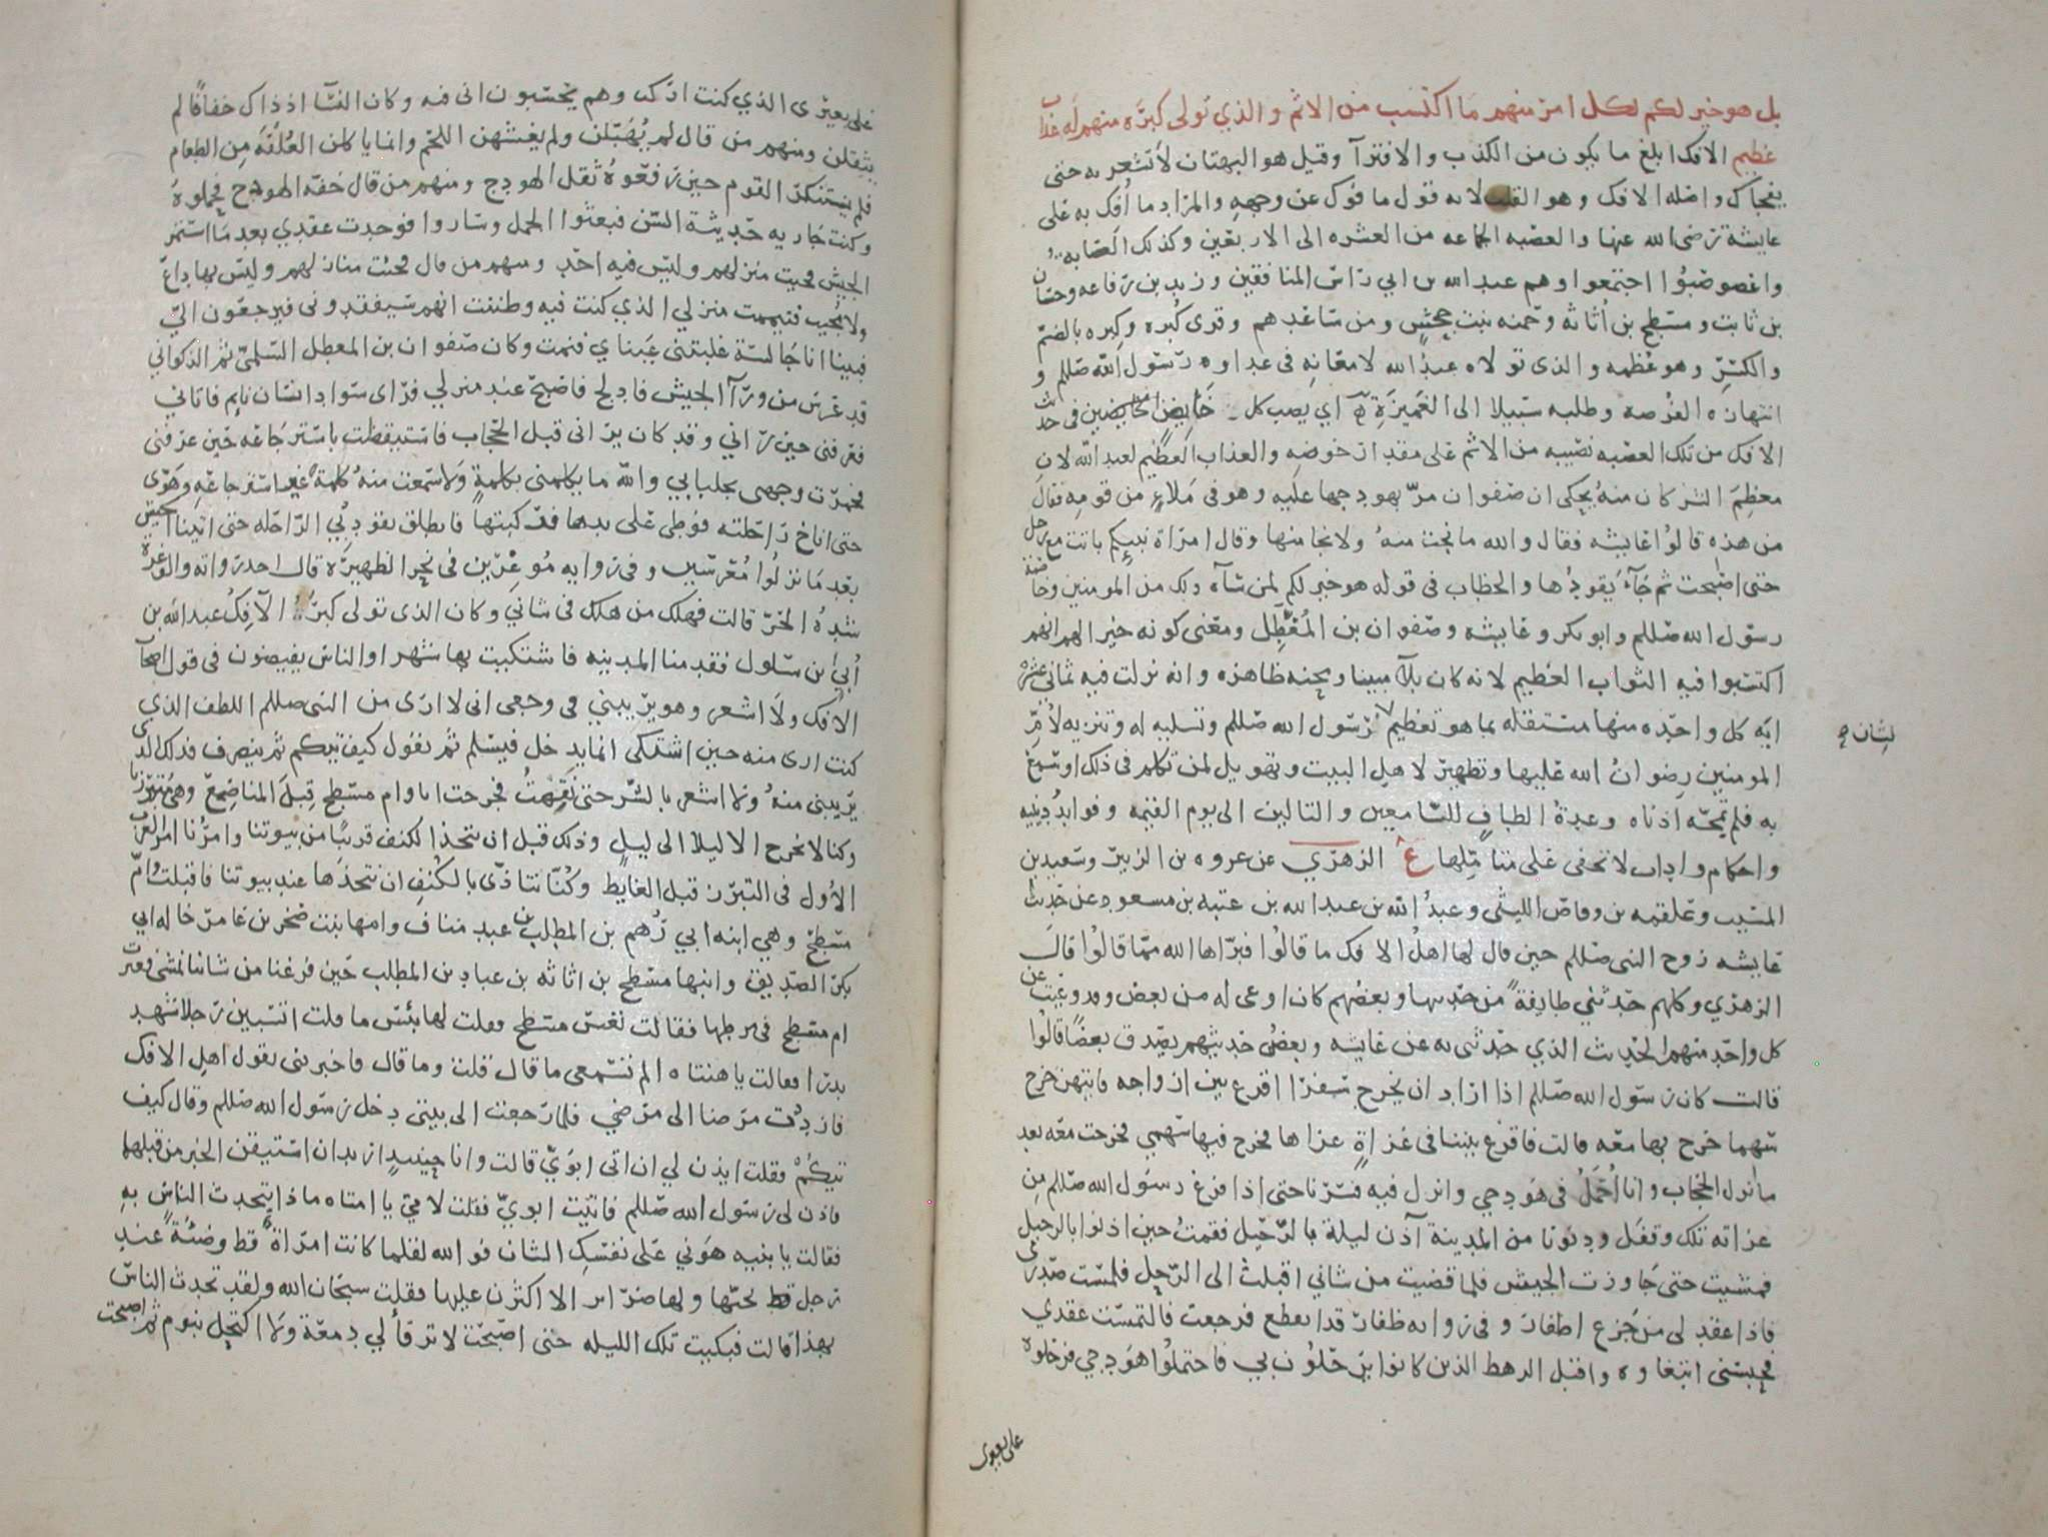 بل هو خير لكم لكل امرئ منهم ما اكتسب من الاثم والذي تولى كبره منهم له عذاب
عظيم الافك ابلغ ما يكون من الكذب والافترآ وقيل هو البهتان لا تشعر به حتى
يفجاك واصله الافك وهو القلب لانه قول مافوك عن وجهه والمراد ما أفك به على
عايشة رضى الله عنها والعصبه الجماعه من العشره الى الاربعين وكذلك العصابه
واعصوصبوا اجتمعوا وهم عبد الله بن ابي راس المنافقين وزيد بن رفاعه وحسان
بن ثابت ومسطح بن أثاثه وحمنه بنت جحش ومن ساعدهم وقرى كُبره وكِبره بالضم
والكسر وهو عُظمه والذى تولاه عبد الله لامعانه فى عداوه رسول الله صللم و
انتهازه الفرصه وطلبه سبيلا الى الغميزة اي يصيب كل خايض في حديث
الافك من تلك العصبه نصيبه من الاثم على مقدار خوضه والعذاب العظيم لعبد الله لان
معظم الشر كان منه يحكى ان صفوان مر بهودجها عليه وهو فى ملاء من قومه فقال
من هذه قالوا عايشه فقال والله ما نجت منه ولا نجا منها وقال امراة نبيكم باتت مع رجل
حتى اصبحت ثم جآء يقودها والخطاب فى قوله هو خير لكم لمن سآه ذلك من المومنين وخاصة
رسول الله صللم وابو بكر وعايشه وصفوان بن المُعَطِّل ومعنى كونه خيرا لهم انهم
اكتسبوا فيه الثواب العظيم لانه كان بلآ مبينا ومحنه ظاهره وانه نزلت فيه ثماني عشر
ايه كل واحده منها مستقله بما هو تعظيم رسول الله صللم وتسليه له وتنزيه لام
لشان
المومنين رضوان الله عليها وتطهير لاهل البيت وتهويل لمن تكلم فى ذلك او سمع
به فلم تمجه اذناه وعدة الطاف للسامعين والتالين الى يوم القيمه وفوايد دينيه
واحكام واداب لا تخفى على متامليها ع الزهري عن عروه بن الزبير وسعيد بن
المسيب وعلقمه بن وقاص الليثى وعبد الله بن عبد الله بن عتبه بن مسعود عن حديث
عايشه زوج النبى صللم حين قال لها اهل الافك ما قالوا فبراها الله مما قالوا قال
الزهري وكلهم حدثني طايفة من حديثها وبعضهم كان اوعى له من بعض وقد وعيت عن
كل واحد منهم الحديث الذي حدثنى به عن عايشه وبعض حديثهم يصدق بعضا قالوا
قالت كان رسول الله صللم اذا اراد ان يخرج سفرا اقرع بين ازواجه فايتهن خرج
سهمها خرج بها معه قالت فاقرع بيننا فى غزاة غزاها فخرج فيها سهمي فخرجت معه بعد
ما نزل الحجاب وانا أُحمَلُ فى هودجي وانزل فيه فسرنا حتى اذا فرغ رسول الله صللم من
غزاته تلك وقفل ودنونا من المدينة آذن ليلة بالرحيل فقمت حين اذنوا بالرحيل
فمشيت حتى جاوزت الجيش فلما قضيت من شاني اقبلت الى الرحل فلمست صدرى
فاذا عقد لى من جزع اظفار وفى روايه ظفار قد انقطع فرجعت فالتمست عقدي
فحبسنى ابتغاوه واقبل الرهط الذين كانوا يرحلون بي فاحتملوا هودجي فرحلوه
على بعيرى
على بعيرى الذي كنت اركب وهم يحسبون انى فيه وكان النسآ اذ ذاك خفافًا لم
يثقلن ومنهم من قال لم يُهَبّلن ولم يغشهن اللحم وانما ياكلن العُلْقَةَ من الطعام
فلم يستنكر القوم حين رفعوهُ ثقل الهودج ومنهم من قال خفه الهودج فحملوهُ
وكنت جاريه حديثة السن فبعثوا الجمل وساروا فوجدت عقدي بعد ما استمر
الجيش فجيت منزلهم وليس فيه احد ومنهم من قال فجئت منازلهم وليس بها داع
ولا مجيب فتيممت منزلي الذي كنت فيه وظننت انهم سيفقدونى فيرجعون اليّ
فبينا انا جالسة غلبتنى عيناي فنمت وكان صفوان بن المعطل السلمىّ ثم الذكواني
قد عرس من ورآ الجيش فادلج فاصبح عند منزلي فراى سواد انسان نايم فاتاني
فعرفنى حين راني وقد كان يرانى قبل الحجاب فاستيقظت باسترجاعه حين عرفنى
فخمرت وجهى بجلبابي والله ما يكلمنى بكلمةٍ ولا سمعت منهُ كلمة غير استرجاعهِ وهوى
حتى اناخ راحلته فوطى على يدها فركبتها فانطلق يقود بي الراحله حتى اتينا الجيش
بعد ما نزلوا مُعرسين وفى روايه مُوغرين فى نحر الظهيره قال احد رواته والوغرة
شدهُ الحرّ قالت فهلك من هلك فى شاني وكان الذى تولى كبرَهُ الآفكُ عبد الله بن
أبي بن سلول فقدمنا المدينه فاشتكيت بها شهرا والناس يفيضون فى قول اصحاب
الافك ولا اشعر وهو يريبني فى وجعى انى لا ارى من النبى صللم اللطف الذي
كنت ارى منه حين اشتكى انما يدخل فيسلم ثم يقول كيف تيكم ثم ينصرف فذلك الذى
يريبنى منهُ ولا اشعر بالشر حتى نَقِهتُ فخرجت انا وام مسطح قِبلَ المناصع وهى متبرزنا
وكنا لا نخرج الا ليلا الى ليل وذلك قبل ان نتخذ الكنف قريبًا من بيوتنا وامرُنا امر العرب
الأول فى التبرز قبل الغايط وكُنّا نتاذّى بالكُنفِ ان نتخذها عند بيوتنا فاقبلت وامّ
مسطح وهي ابنه ابي رُهم بن المطلب بن عبد مناف وامها بنت صخر بن عامر خاله ابي
بكر الصديق وابنها مسطح بن اثاثه بن عباد بن المطلب حين فرغنا من شاننا نمشى فعثرت
ام مسطح فى مرطها فقالت تعس مسطح فقلت لها بئس ما قلت اتسبين رجلا شهد
بدرا فقالت يا هنتاه الم تسمعى ما قال قلت وما قال فاخبرتنى بقول اهل الافك
فازددت مرضا الى مرضي فلما رجعت الى بيتى دخل رسول الله صللم وقال كيف
تيكمْ فقلت ايذن لي ان اتى ابويّ قالت وانا حينيدٍ اريد ان استيقن الخبر من قبلهما
فاذن لى رسول الله صللم فاتيت ابويّ فقلت لامّي يا امتاه ماذا يتحدث الناس بهِ
فقالت يا بنيه هوّني على نفسك الشان فوالله لقلما كانت امراة قط وضئة عند
رجل قط يحبّها ولها ضراير الا اكثرن عليها فقلت سبحان الله ولقد تحدث الناس
بهذا قالت فبكيت تلك الليله حتى اصبحت لا ترقأ لي دمعة ولا اكتحل بنوم ثم اصبحت